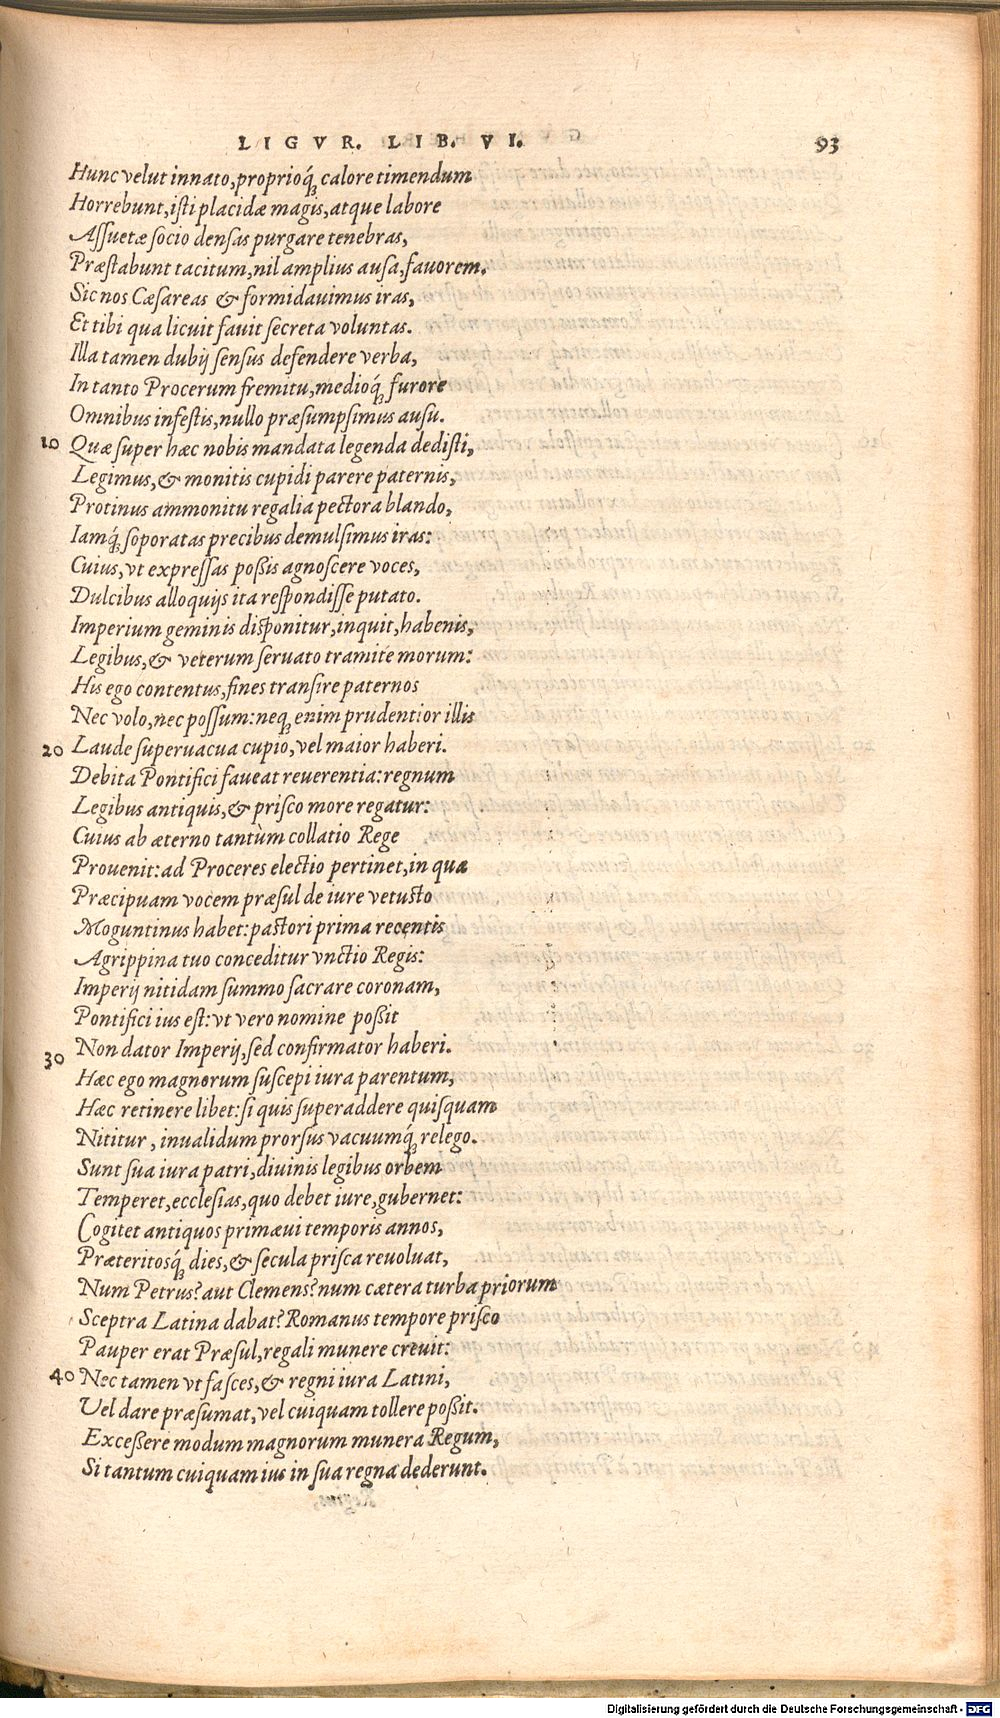 LIGVR. LIB. VI. 93
Hunc velut innato, proprioq́; calore timendum
Horrebunt, isti placidæ magis, atque labore
Assuetæ socio densas purgare tenebras,
Præstabunt tacitum, nil amplius ausa, fauorem.
Sic nos Cæsareas & formidauimus iras,
Et tibi qua licuit fauit secreta voluntas.
Illa tamen dubij sensus defendere verba,
In tanto Procerum fremitu, medioq́; furore
Omnibus infestis, nullo præsumpsimus ausu.
10 Quæ super hæc nobis mandata legenda dedisti,
Legimus, & monitis cupidi parere paternis,
Protinus ammonitu regalia pectora blando,
Iamq́; soporatas precibus demulsimus iras:
Cuius, vt expressas poßis agnoscere voces,
Dulcibus alloquijs ita respondisse putato.
Imperium geminis disponitur, inquit, habenis,
Legibus, & veterum seruato tramite morum:
His ego contentus, fines transire paternos
Nec volo, nec possum: neq; enim prudentior illis
20 Laude superuacua cupio, vel maior haberi.
Debita Pontifici faueat reuerentia: regnum
Legibus antiquis, & prisco more regatur:
Cuius ab æterno tantùm collatio Rege
Prouenit: ad Proceres electio pertinet, in qua
Præcipuam vocem præsul de iure vetusto
Moguntinus habet: pastori prima recentis
Agrippina tuo conceditur vnctio Regis:
Imperij nitidam summo sacrare coronam,
Pontifici ius est: vt vero nomine poßit
30 Non dator Imperij, sed confirmator haberi.
Hæc ego magnorum suscepi iura parentum,
Hæc retinere libet: si quis superaddere quisquam
Nititur, inualidum prorsus vacuumq́; relego.
Sunt sua iura patri, diuinis legibus orbem
Temperet, ecclesias, quo debet iure, gubernet:
Cogitet antiquos primæui temporis annos,
Præteritosq́; dies, & secula prisca reuoluat,
Num Petrus? aut Clemens? num cætera turba priorum
Sceptra Latina dabat? Romanus tempore prisco
Pauper erat Præsul, regali munere creuit:
40 Nec tamen vt fasces, & regni iura Latini,
Vel dare præsumat, vel cuiquam tollere poßit.
Exceßere modum magnorum munera Regum,
Si tantum cuiquam ius in sua regna dederunt.
Digitalisierung gefördert durch die Deutsche Forschungsgemeinschaft - DFG